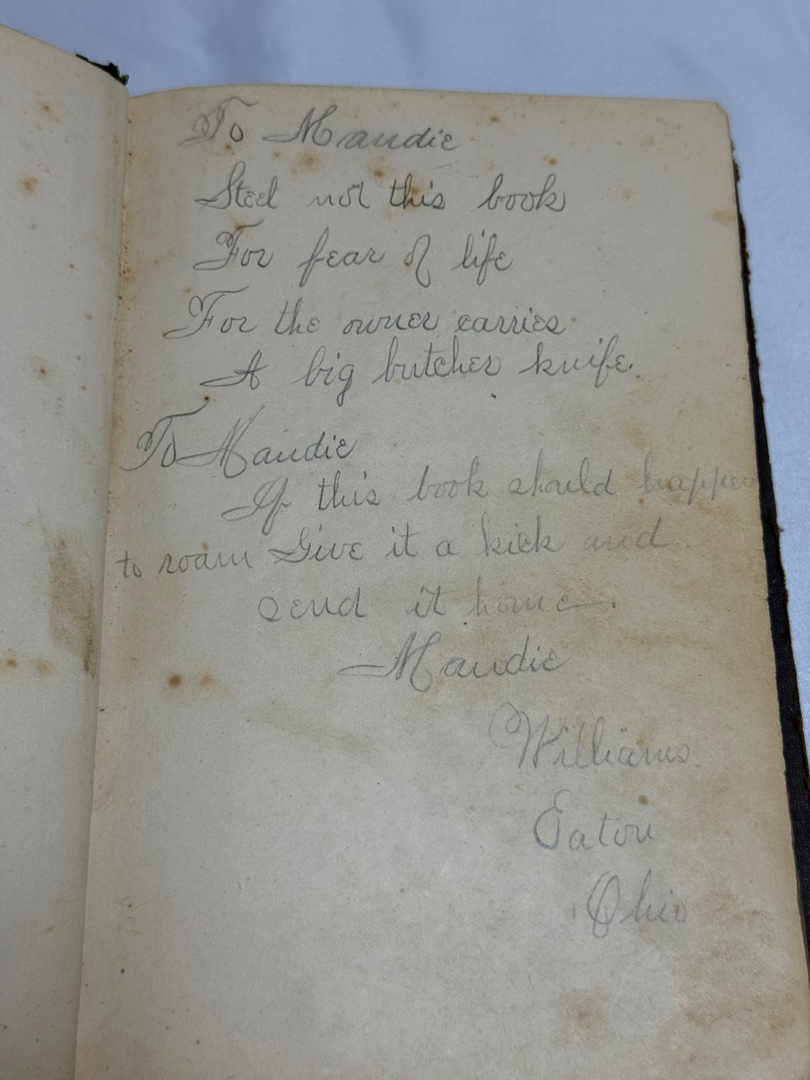 To Maudie
Steel not this book
For fear of life
For the owner carries
A big butcher knife.
To Maudie
If this book should happen
to roam Give it a kick and
send it home.
Maudie
Williams.
Eaton
Ohio